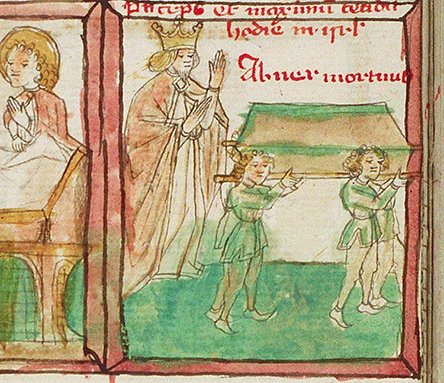 Pinceps et maximus cecidit
hodie in isrl
Abner mortuus